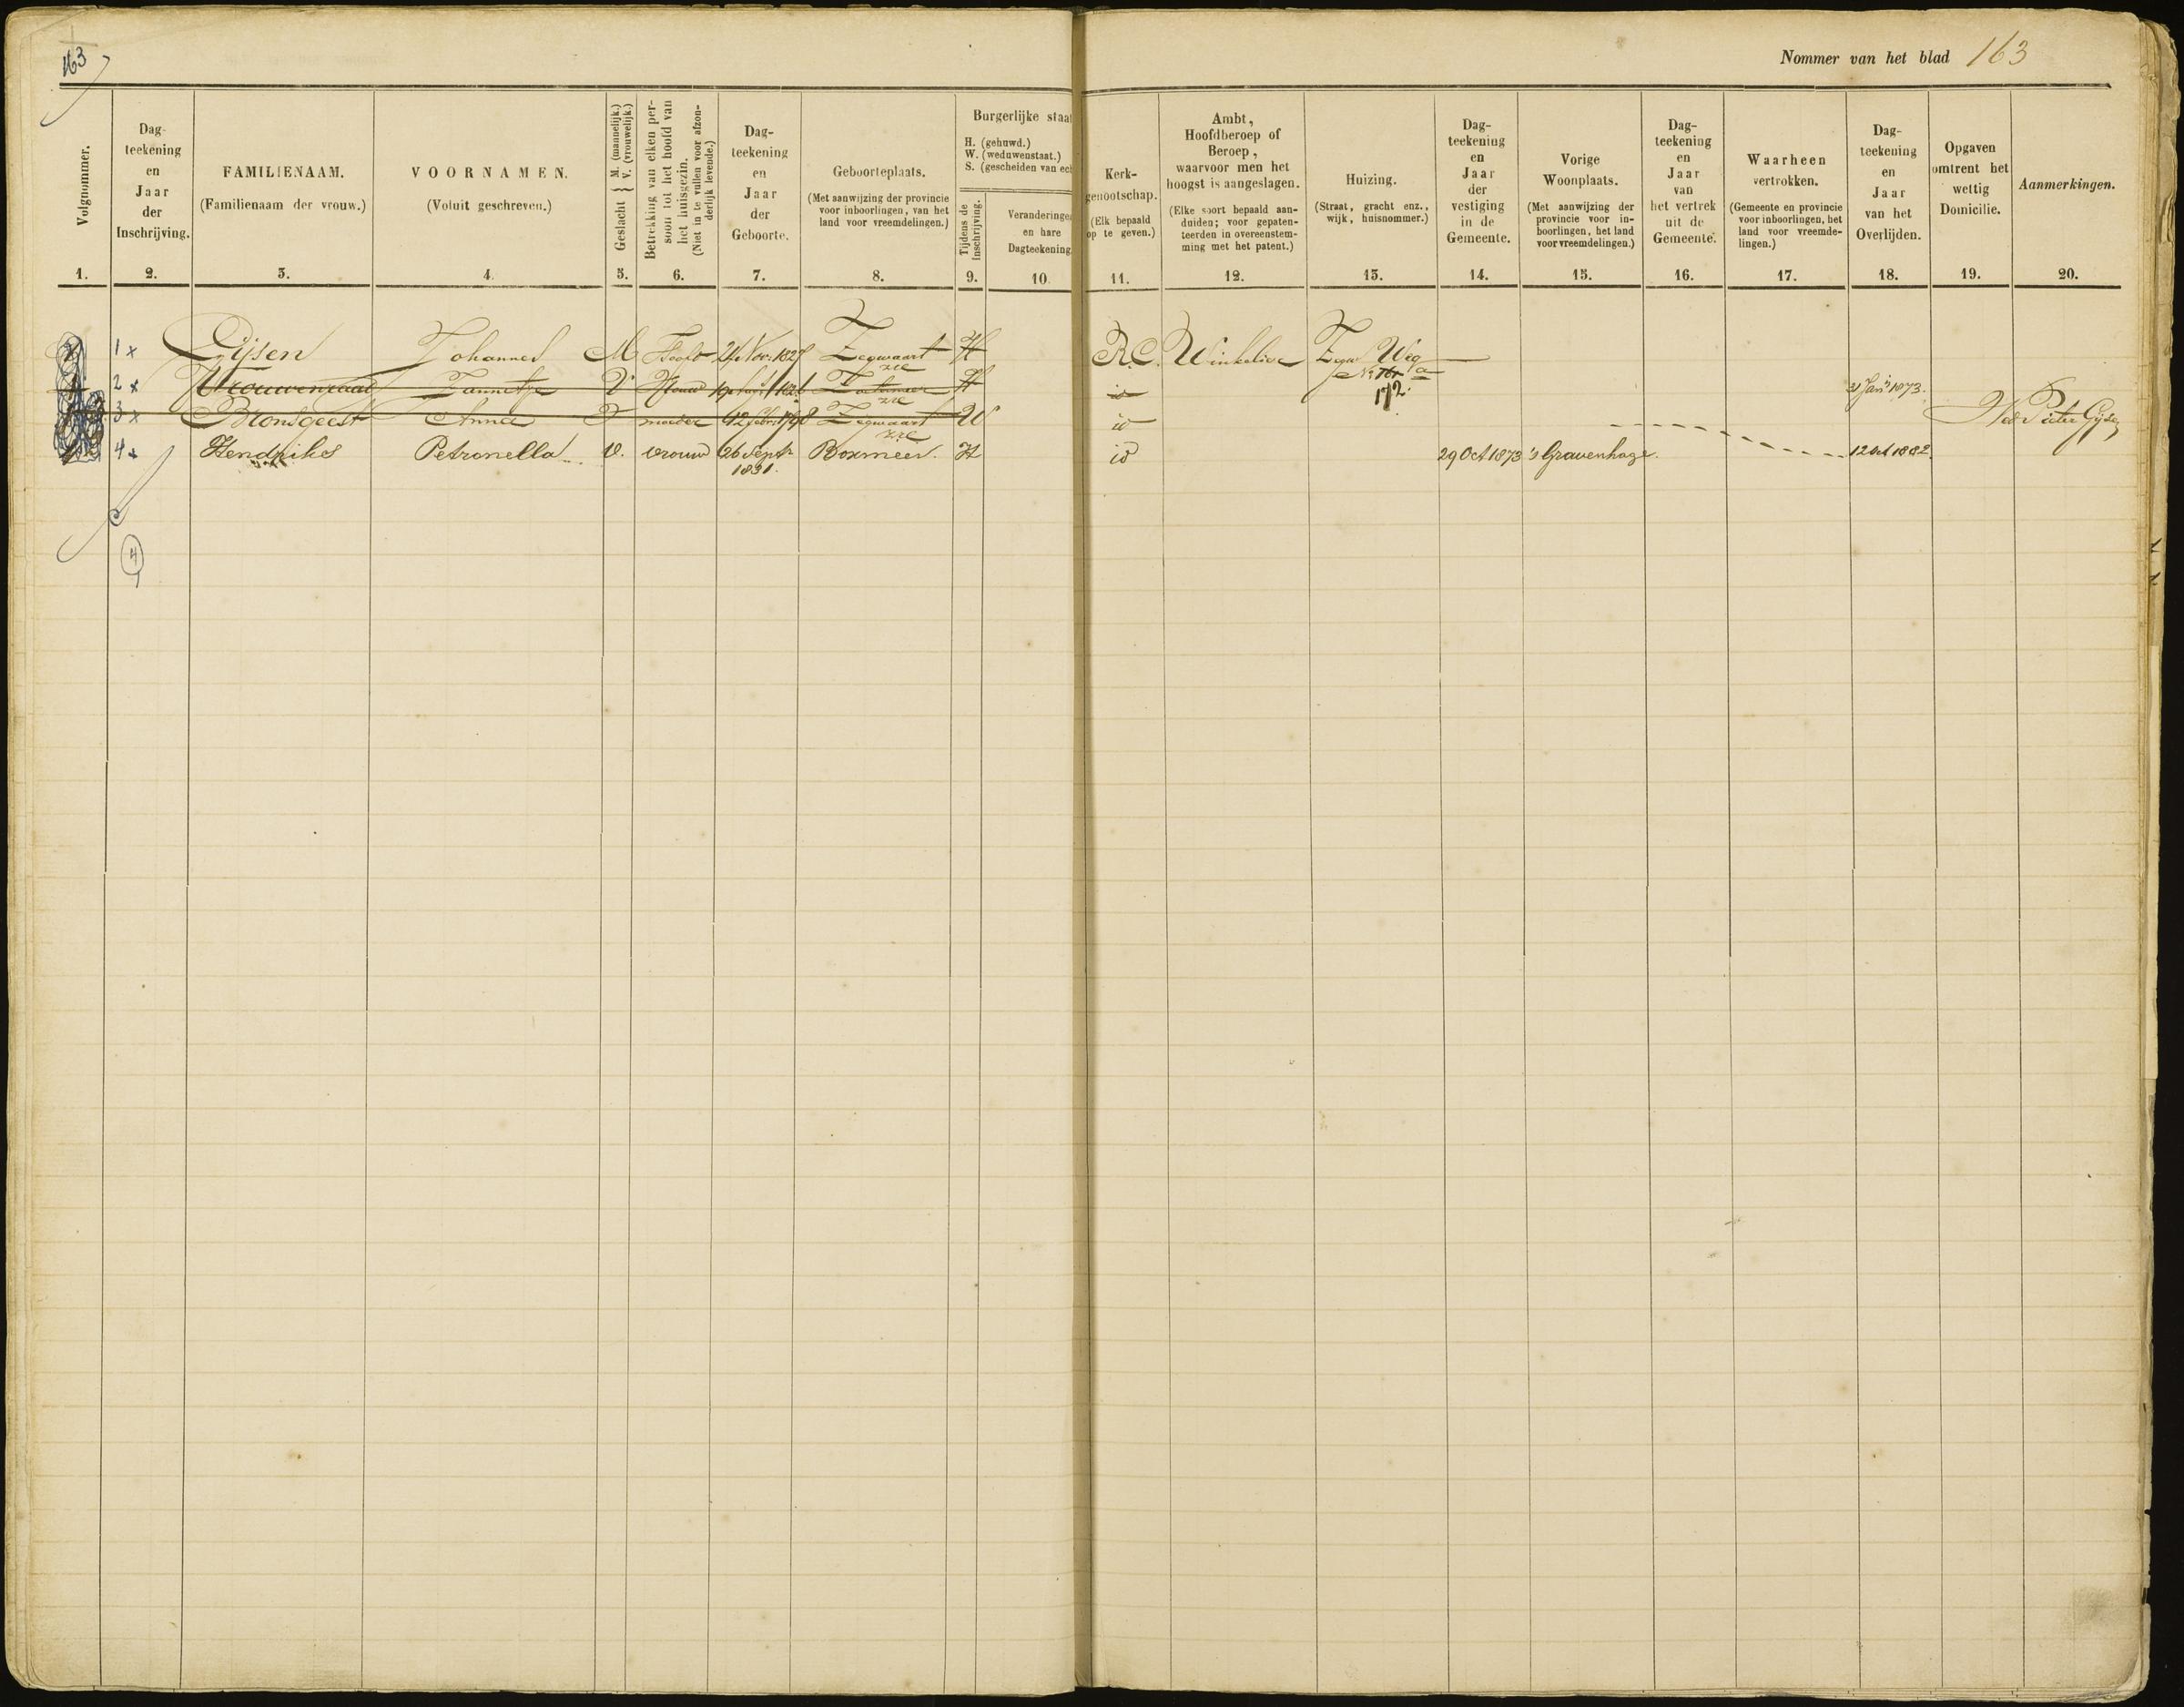 163
Nommer van het blad 163
Volgnommer.
1.
Dag-
teekening
en
Jaar
der
Inschrijving.
2.
FAMILIENAAM.
(Familienaam der vrouw.)
3.
VOORNAMEN.
(Voluit geschreven.)
4.
Geslacht { M. (mannelijk.)
V. (vrouwelijk.)
5.
Betrekking van elken per-
soon tot het hoofd van
het huisgezin.
(Niet in te vullen voor afzon-
derlijk levende.)
6.
Dag-
teekening
en
Jaar
der
Geboorte.
7.
Geboorteplaats.
(Met aanwijzing der provincie
voor inboorlingen, van het
land voor vreemdelingen.)
8.
Burgerlijke staat
H. (gehuwd.)
W. (weduwenstaat.)
S. (gescheiden van ech
Tijdens de
Inschrijving.
9.
Veranderingen
en hare
Dagteekening.
10.
Kerk-
genootschap.
(Elk bepaald
op te geven.)
11.
Ambt,
Hoofdberoep of
Beroep,
waarvoor men het
hoogst is aangeslagen.
(Elke soort bepaald aan-
duiden; voor gepaten-
teerden in overeenstem-
ming met het patent.)
12.
Huizing.
(Straat, gracht enz.,
wijk, huisnommer.)
13.
Dag-
teekening
en
Jaar
der
vestiging
in de
Gemeente.
14.
Vorige
Woonplaats.
(Met aanwijzing der
provincie voor in-
boorlingen, het land
voor vreemdelingen.)
15.
Dag-
teekening
en
Jaar
van
het vertrek
uit de
Gemeente.
16.
Waarheen
vertrokken.
(Gemeente en provincie
voor inboorlingen, het
land voor vreemde-
lingen.)
17.
Dag-
teekening
en
Jaar
van het
Overlijden.
18.
Opgaven
omtrent het
wettig
Domicilie.
19.
Aanmerkingen.
20.
1 x Gijsen Johannes M Hoofd 21 Nov 1827 Zegwaart H R.C. Winkelier Zegw Weg
2 x Vrouwenraad Jannetje V Vrouw Zoetermeer H id 172. 21 Jan 1873.
3 x Bronsgeest Anna V moeder 12 febr 1798 Zegwaart W id Wed Pieter Gijsen
4 x Hendriks Petronella V. vrouw 26 Sept 1831. Boxmeer. H id 29 Oct 1873 's Gravenhage. 12 Oct 1882.
4